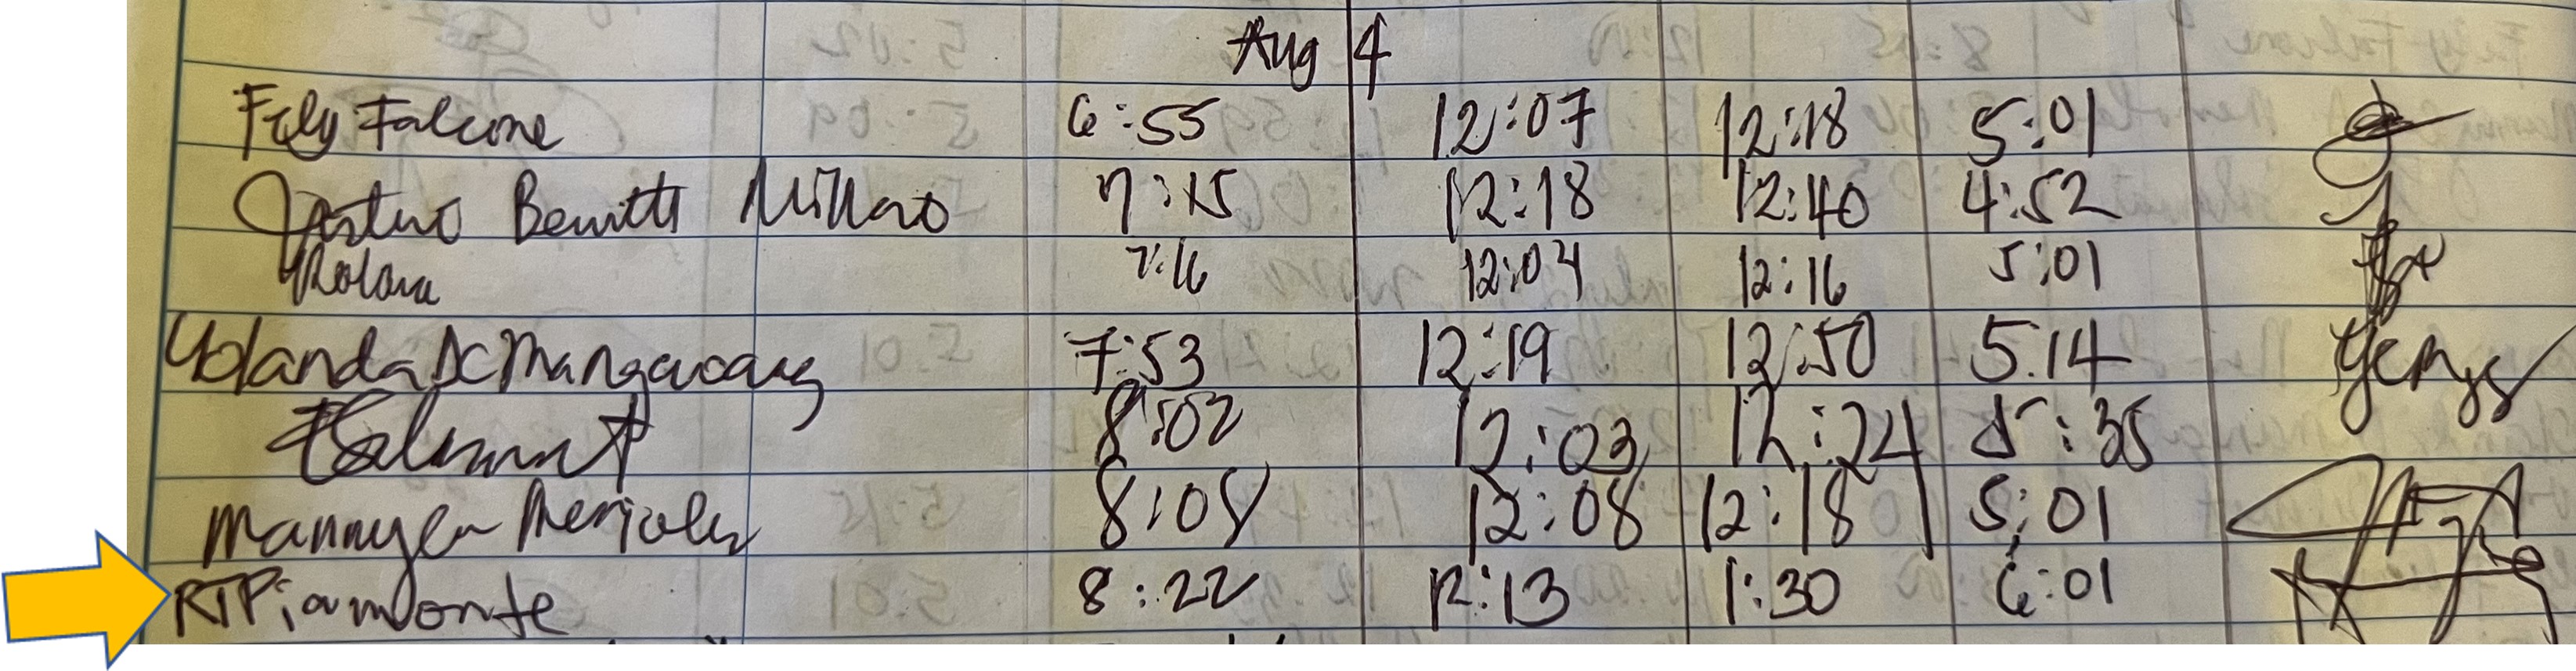 Aug 4
Fely Falcone 6:55 12:07 12:18 5:01
7:15 12:18 12:40 4:52
7:16 12:04 12:16 5:01
Yolanda DC Mangawang 7:53 12:19 12:50 5:14
8:02 12:03 12:24 5:35
8:08 12:08 12:18 5:01
RTPiamonte 8:22 12:13 1:30 6:01